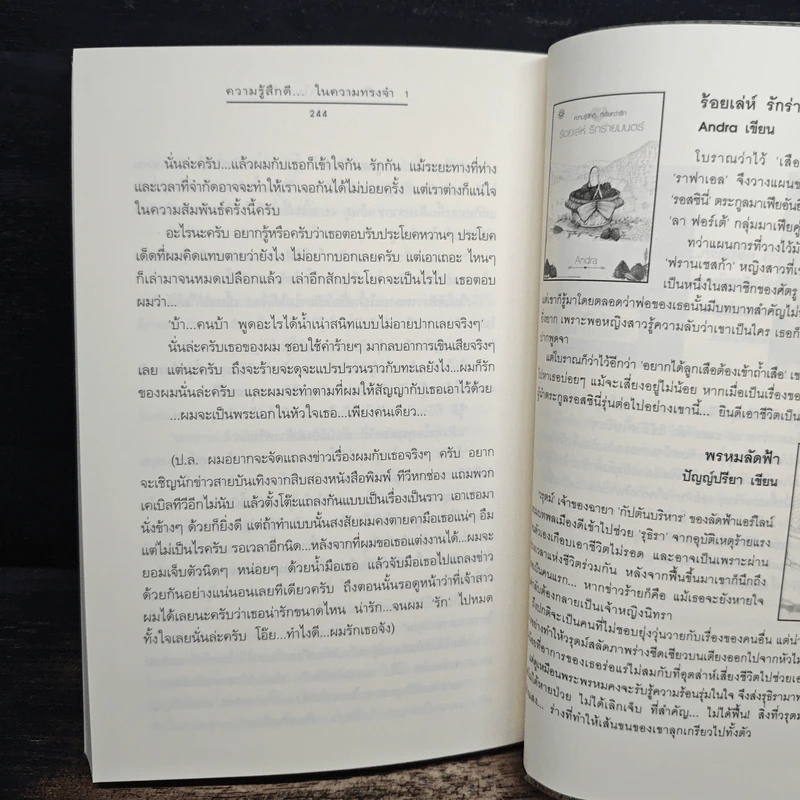 ความรู้สึกดี... ในความทรงจำ 1
244
นั่นล่ะครับ...แล้วผมกับเธอก็เข้าใจกัน รักกัน แม้ระยะทางที่ห่าง
และเวลาที่จำกัดอาจจะทำให้เราเจอกันได้ไม่บ่อยครั้ง แต่เราต่างก็แน่ใจ
ในความสัมพันธ์ครั้งนี้ครับ
อะไรนะครับ อยากรู้หรือครับว่าเธอตอบรับประโยคหวานๆ ประโยค
เด็ดที่ผมคิดแทบตายว่ายังไง ไม่อยากบอกเลยครับ แต่เอาเถอะ ไหนๆ
ก็เล่ามาจนหมดเปลือกแล้ว เล่าอีกสักประโยคจะเป็นไรไป เธอตอบ
ผมว่า...
‘บ้า...คนบ้า พูดอะไรได้น้ำเน่าสนิทแบบไม่อายปากเลยจริงๆ’
นั่นล่ะครับเธอของผม ชอบใช้คำร้ายๆ มากลบอาการเขินเสียจริงๆ
เลย แต่นะครับ ถึงจะร้ายจะดุจะแปรปรวนราวกับทะเลยังไง...ผมก็รัก
ของผมนั่นล่ะครับ และผมจะทำตามที่ผมให้สัญญากับเธอเอาไว้ด้วย
...ผมจะเป็นพระเอกในหัวใจเธอ...เพียงคนเดียว...
(ป.ล. ผมอยากจะจัดแถลงข่าวเรื่องผมกับเธอจริงๆ ครับ อยาก
จะเชิญนักข่าวสายบันเทิงจากสิบสองหนังสือพิมพ์ ทีวีหกช่อง แถมพวก
เคเบิลทีวีอีกไม่นับ แล้วตั้งโต๊ะแถลงกันแบบเป็นเรื่องเป็นราว เอาเธอมา
นั่งข้างๆ ด้วยก็ยิ่งดี แต่ถ้าทำแบบนั้นสงสัยผมคงตายคามือเธอแน่ๆ อืม
แต่ไม่เป็นไรครับ รอเวลาอีกนิด...หลังจากที่ผมขอเธอแต่งงานได้...ผมจะ
ยอมเจ็บตัวนิดๆ หน่อยๆ ด้วยน้ำมือเธอ แล้วจับมือเธอไปแถลงข่าว
ด้วยกันอย่างแน่นอนเลยทีเดียวครับ ถึงตอนนั้นรอดูหน้าว่าที่เจ้าสาว
ผมได้เลยนะครับว่าเธอน่ารักขนาดไหน น่ารัก...จนผม ‘รัก’ ไปหมด
ทั้งใจเลยนั่นล่ะครับ โอ๊ย...ทำไงดี...ผมรักเธอจัง)
ร้อยเล่ห์ รักร้าย
Andra เขียน
ร้อยเล่ห์ รักร้ายมนตร์
Andra
โบราณว่าไว้ ‘เสือ
‘ราฟาเอล’ จึงวางแผน
‘รอสซินี’ ตระกูลมาเฟียอัน
‘ลา ฟอร์เต้’ กลุ่มมาเฟีย
ทว่าแผนการที่วางไว้
‘ฟรานเชสก้า’ หญิงสาวที่
เป็นหนึ่งในสมาชิกของศัตรู
แต่เขาก็รู้มาโดยตลอดว่าพ่อของเธอนั้นมีบทบาทสำคัญ
ยิ่งยาก เพราะพอหญิงสาวรู้ความลับว่าเขาเป็นใคร เธอก็
ปากพูดจา
แต่โบราณก็ว่าไว้อีกว่า ‘อยากได้ลูกเสือต้องเข้าถ้ำเสือ’
ไปหาเธอบ่อยๆ แม้จะเสี่ยงอยู่ไม่น้อย หากเมื่อเป็นเรื่องของ
ผู้นำตระกูลรอสซินีรุ่นต่อไปอย่างเขานี้... ยินดีเอาชีวิตเป็น
พรหมลัดฟ้า
ปัญญ์ปรียา เขียน
เจ้าของฉายา ‘กัปตันบริหาร’ ของลัดฟ้าแอร์ไลน์
พลเมืองดีเข้าไปช่วย ‘รุธิรา’ จากอุบัติเหตุร้ายแรง
เกือบเอาชีวิตไม่รอด และอาจเป็นเพราะผ่าน
แห่งชีวิตร่วมกัน หลังจากฟื้นขึ้นมาเขาก็นึกถึง
เป็นคนแรก... หากข่าวร้ายก็คือ แม้เธอจะยังหายใจ
ต้องกลายเป็นเจ้าหญิงนิทรา
ปกติจะเป็นคนที่ไม่ชอบยุ่งวุ่นวายกับเรื่องของคนอื่น แต่
ทำให้วรุตม์สลัดภาพร่างซีดเซียวบนเตียงออกไปจากหัว
ที่อาการของเธอร่อแร่ไม่สมกับที่อุตส่าห์เสี่ยงชีวิตไปช่วย
เหมือนพระพรหมคงจะรับรู้ความร้อนรุ่มในใจ จึงส่งรุธิรามา
หายป่วย ไม่ได้เลิกเจ็บ ที่สำคัญ... ไม่ได้ฟื้น! สิ่งที่
ร่างที่ทำให้เส้นขนของเขาลุกเกรียวไปทั้งตัว